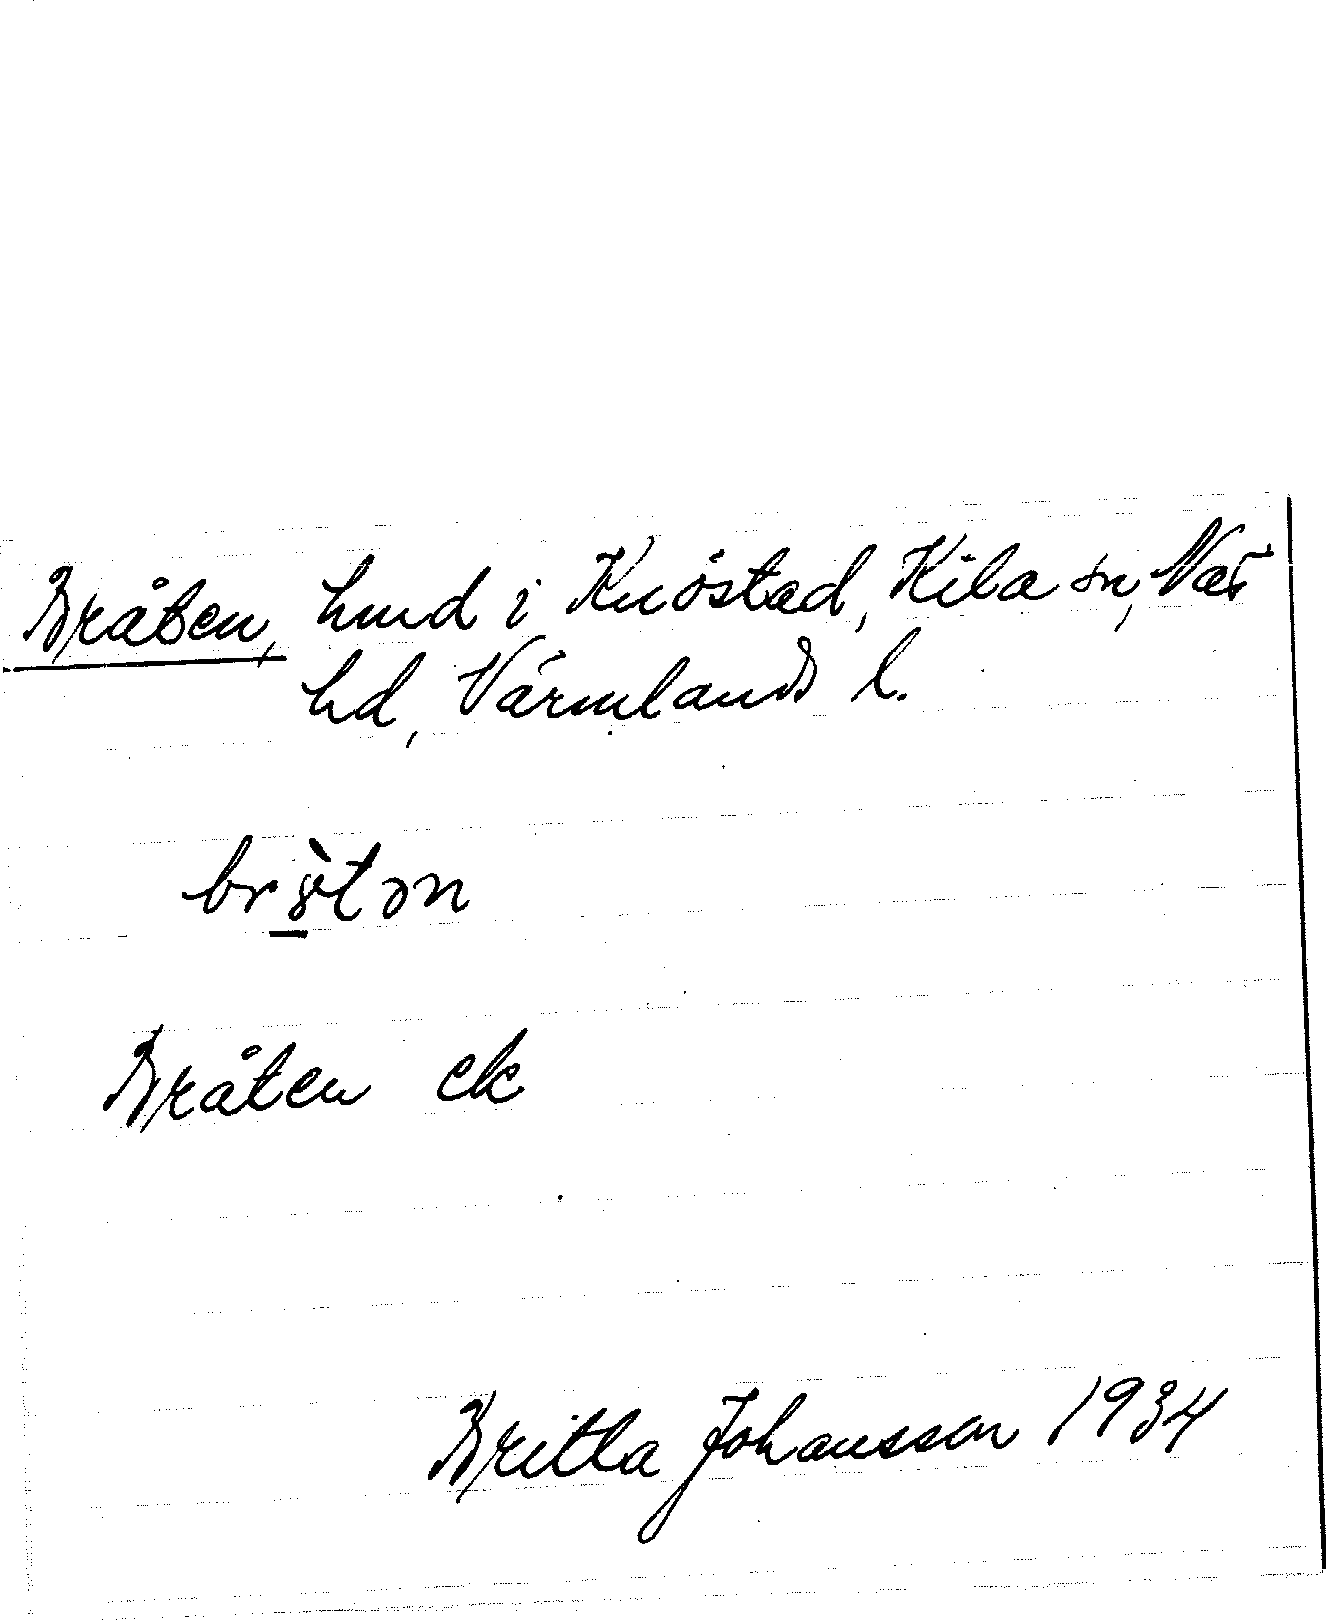 Bråten, hmd i Knöstad, Kila sn, Näs
hd, Värmlands l.
Bråten ek
Britta Johansson 1934